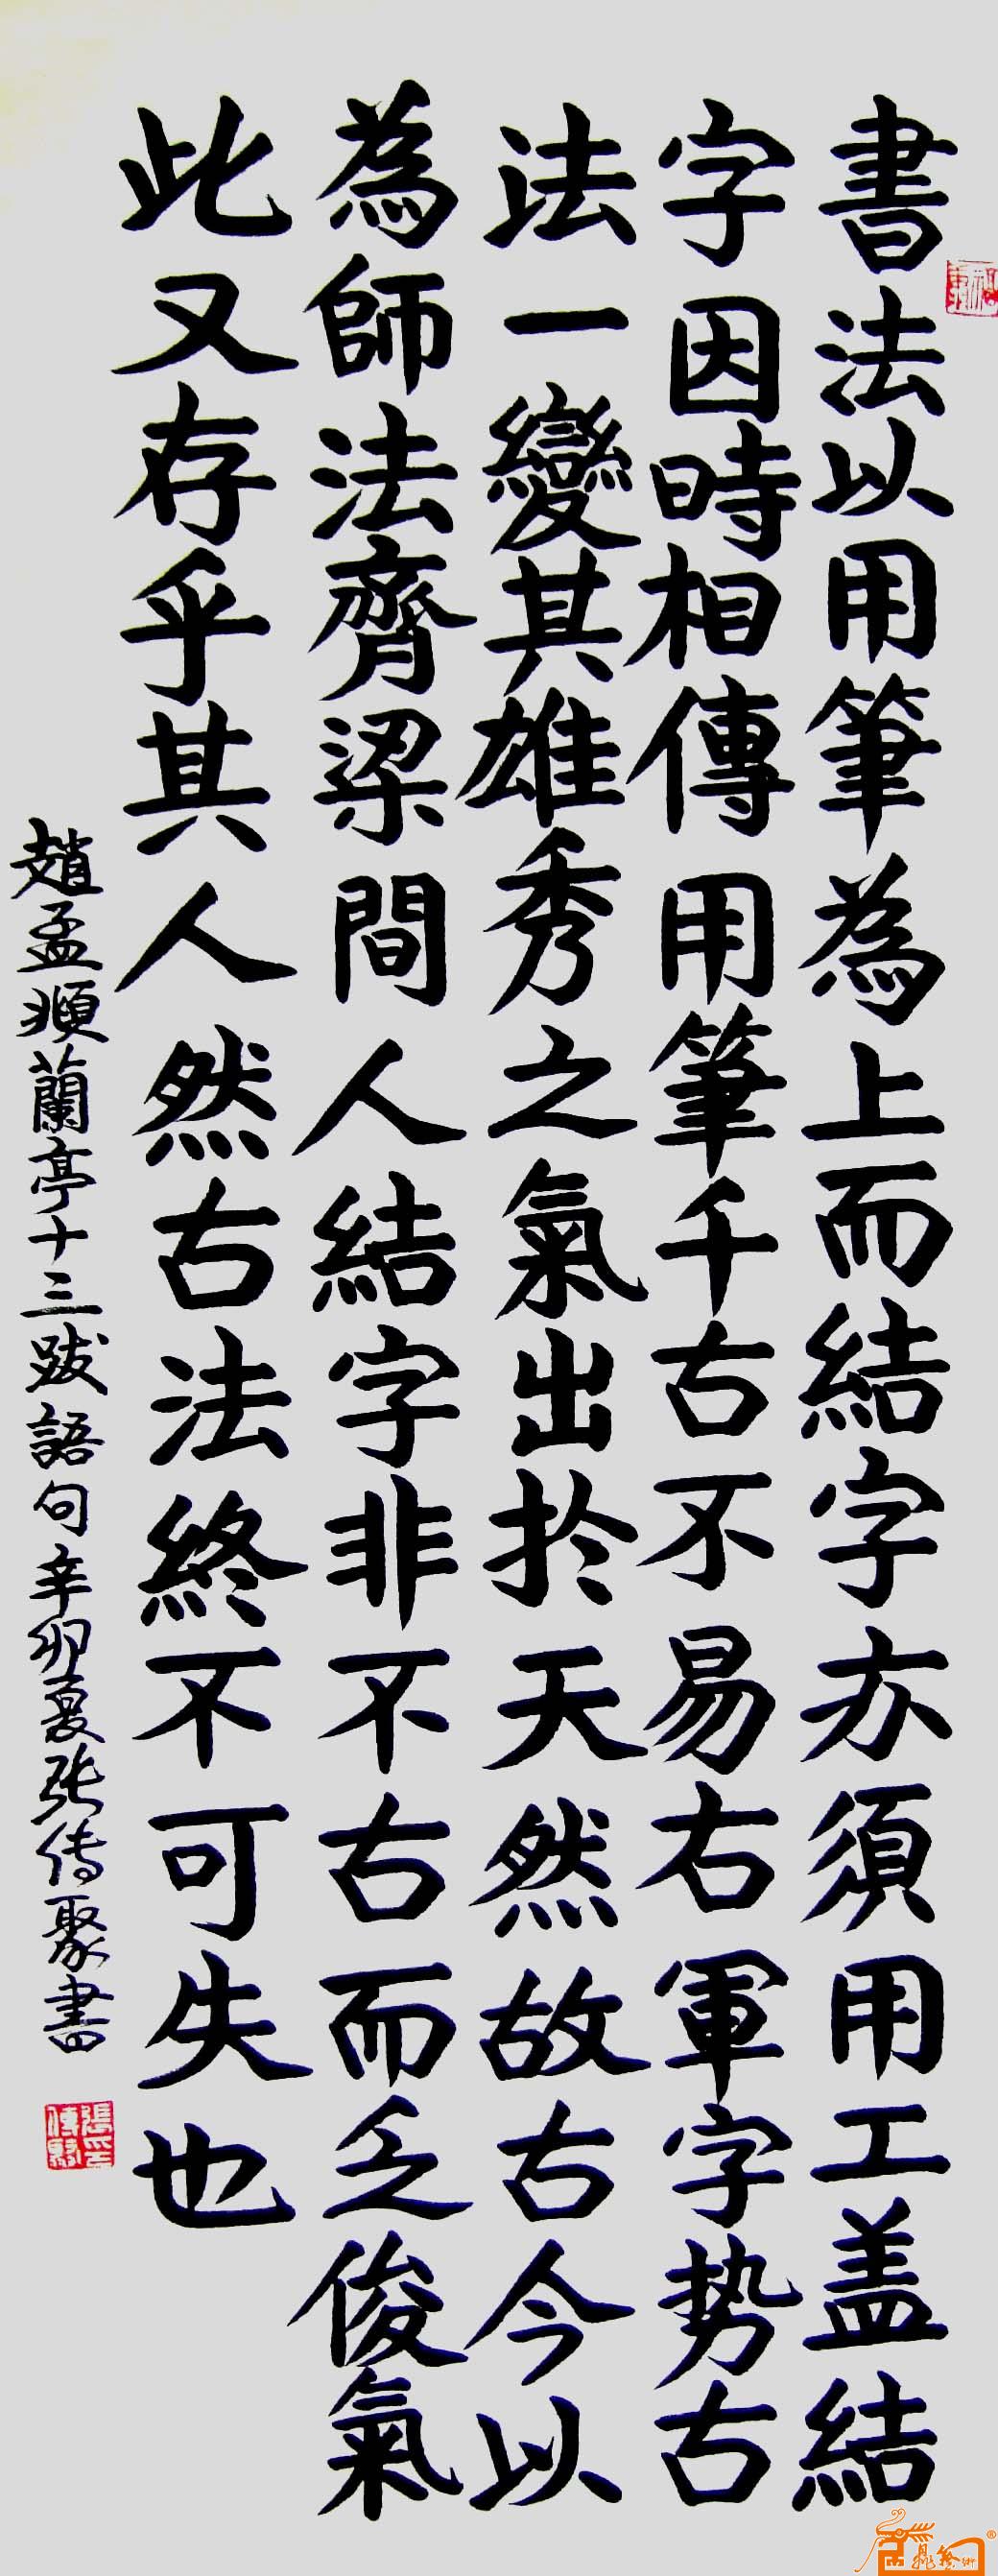 書法以用筆為上而結字亦須用工盖結
字因時相傳用筆千古不易右軍字势古
法一變其雄秀之氣出於天然故古今以
為師法齊梁間人結字非不古而乏俊氣
此又存乎其人然古法終不可失也
趙孟頫蘭亭十三跋語句辛卯夏张传聚書